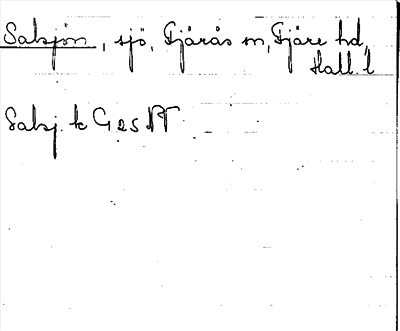 Salsjön, sjö, Fjärås sn, Fjäre hd,
Hall. l
Salsj. k G 25 NV